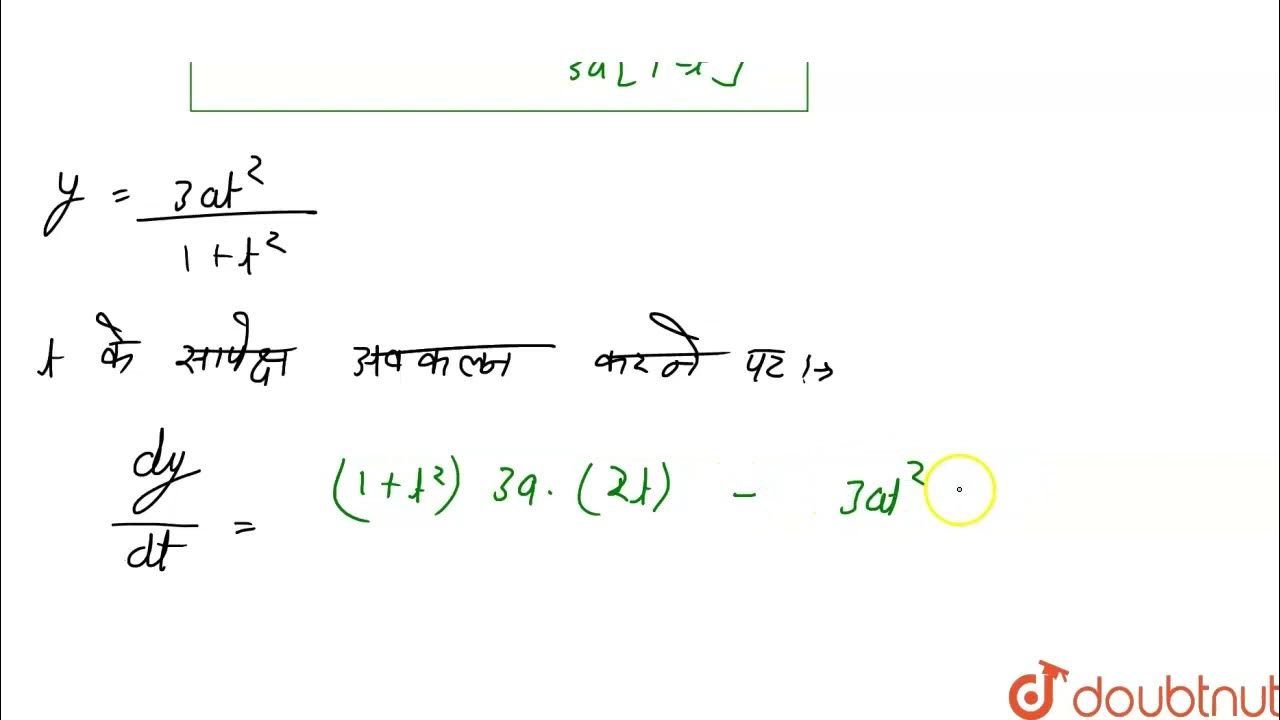 y = 3at²
1+t²
t के सापेक्ष अवकलन करने पर :→
dy
dt = (1+t²) 3a. (2t) - 3at²
doubtnut